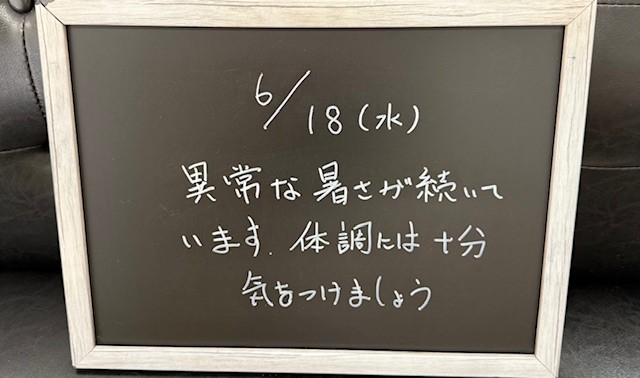 6/18(水)
異常な暑さが続いて
います.体調には十分
気をつけましょう